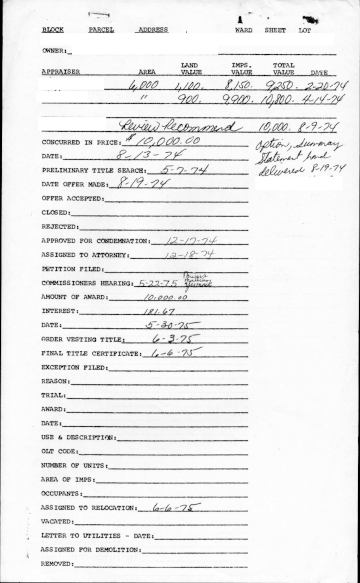 BLOCK PARCEL ADDRESS WARD SHEET LOT
OWNER:
APPRAISER AREA LAND VALUE IMPS. VALUE TOTAL VALUE DATE
6,000 1,100. 8,150. 9,250. 2-20-74
" 900. 9,900. 10,800. 4-14-74
Review Recommend 10,000. 8-9-74
CONCURRED IN PRICE: $10,000.00
option, summary
DATE: 8-13-74
Statement hand
PRELIMINARY TITLE SEARCH: 5-7-74
delivered 8-19-74
DATE OFFER MADE: 8-19-74
OFFER ACCEPTED:
CLOSED:
REJECTED:
APPROVED FOR CONDEMNATION: 12-17-74
ASSIGNED TO ATTORNEY: 12-18-74
PETITION FILED:
COMMISSIONERS HEARING: 5-22-75
AMOUNT OF AWARD: 10,000.00
INTEREST: 181.67
DATE: 5-30-75
ORDER VESTING TITLE: 6-3-75
FINAL TITLE CERTIFICATE: 6-6-75
EXCEPTION FILED:
REASON:
TRIAL:
AWARD:
DATE:
USE & DESCRIPTION:
OLT CODE:
NUMBER OF UNITS:
AREA OF IMPS:
OCCUPANTS:
ASSIGNED TO RELOCATION: 6-6-75
VACATED:
LETTER TO UTILITIES - DATE:
ASSIGNED FOR DEMOLITION:
REMOVED: